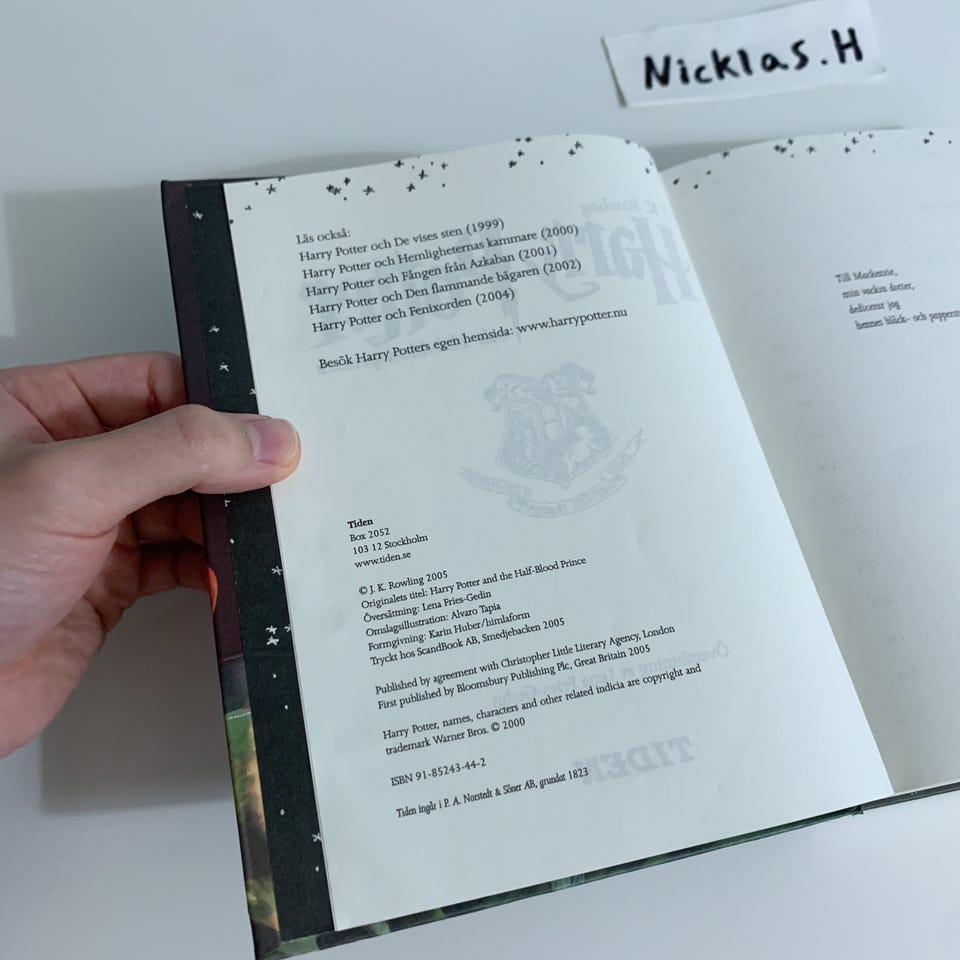 Nicklas.H
Läs också:
Harry Potter och De vises sten (1999)
Harry Potter och Hemligheternas kammare (2000)
Harry Potter och Fången från Azkaban (2001)
Harry Potter och Den flammande bägaren (2002)
Harry Potter och Fenixorden (2004)
Besök Harry Potters egen hemsida: www.harrypotter.nu
Tiden
Box 2052
103 12 Stockholm
www.tiden.se
© J. K. Rowling 2005
Originalets titel: Harry Potter and the Half-Blood Prince
Översättning: Lena Fries-Gedin
Omslagsillustration: Alvaro Tapia
Formgivning: Karin Huber/himlaform
Tryckt hos ScandBook AB, Smedjebacken 2005
Published by agreement with Christopher Little Literary Agency, London
First published by Bloomsbury Publishing Plc, Great Britain 2005
Harry Potter, names, characters and other related indicia are copyright and
trademark Warner Bros. © 2000
ISBN 91-85243-44-2
Tiden ingår i P. A. Norstedt & Söner AB, grundat 1823
Till Mackenzie,
min vackra dotter,
dedicerar jag
hennes bläck- och